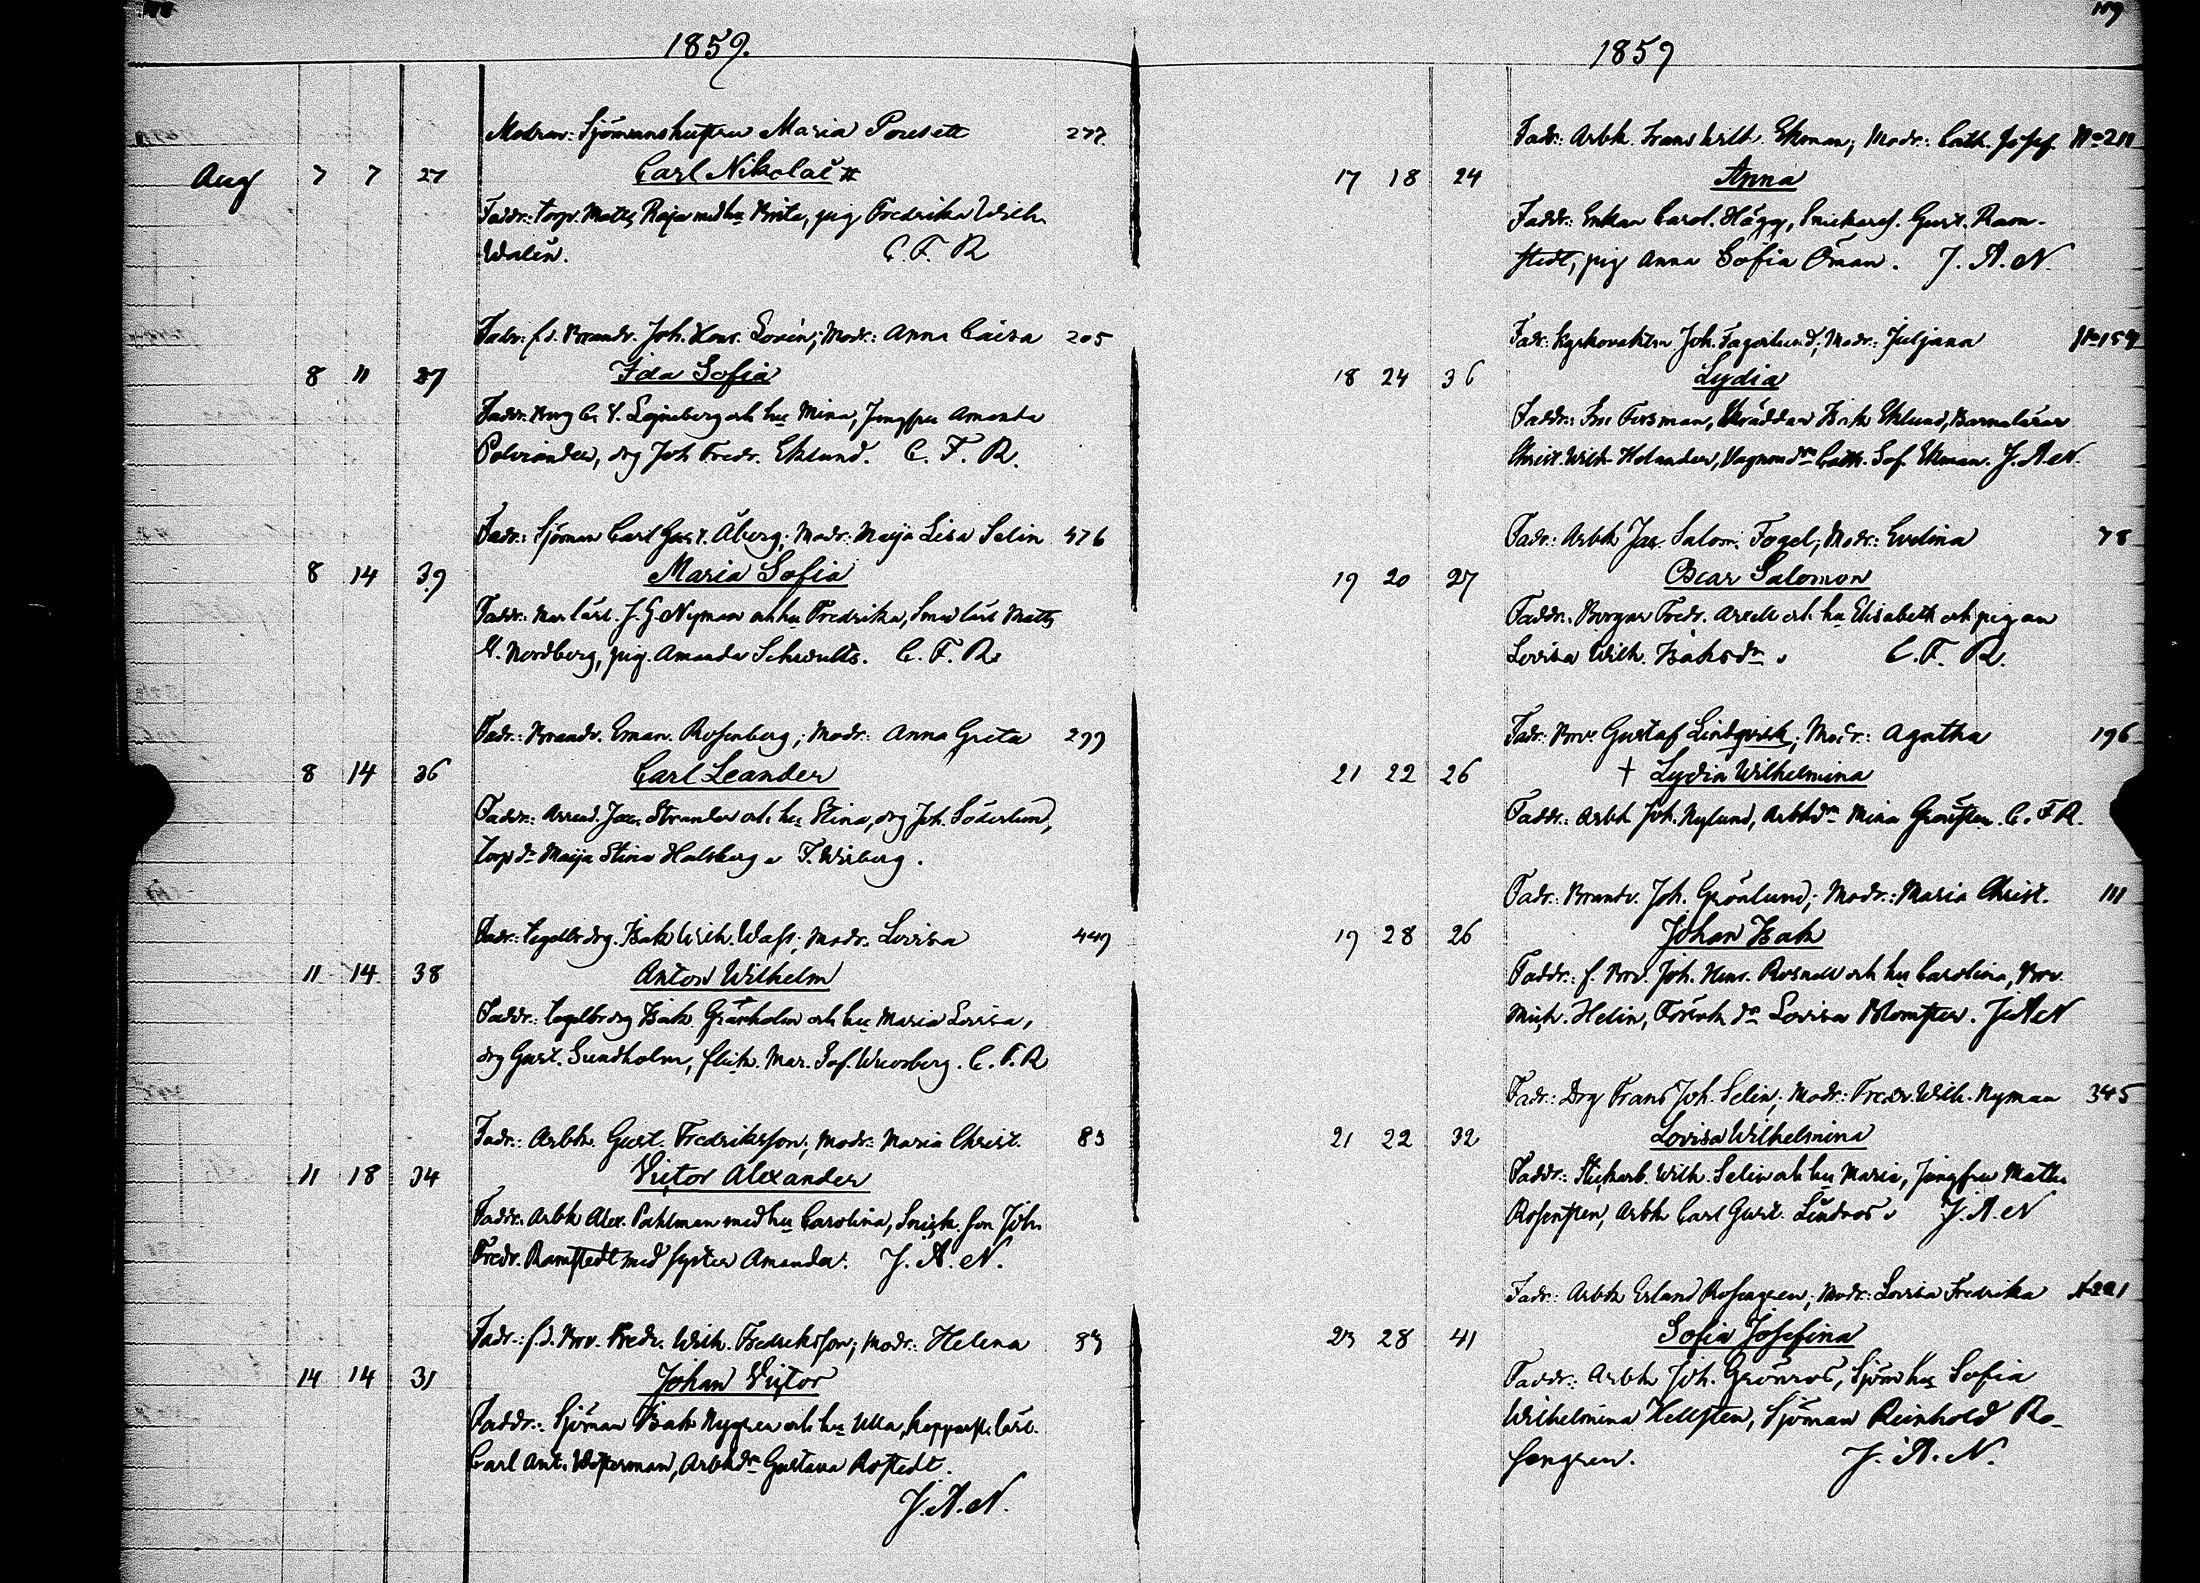 1859.
Modren: Sjömanshustru Maria Pousett 277.
Aug 7 7 27 Carl Nikolai #
Faddr: torp. Matts Raja med hu Brita, pig Fredrika Wilh.
Walin. C. F. R
Fadr: f.d. Brandv. Joh. Henr. Lovin; Modr: Anna Caisa 205
8 11 27 Ida Sofia
Faddr: Borg C. V. Lejneberg och hu Mina, Jungfru Amanda
Polviander, drg Joh Fredr. Eklund. C. F. R.
Fadr: Sjöman Carl Gust. Åberg; Modr: Maija Lisa Selin 476
8 14 39 Maria Sofia
Faddr: J. G. Nyman och hu Fredrika, Matts
G. Nordberg, pig. Amanda Schwults. C. F. R.
Fadr: Brandv. Eman. Rosenberg; Modr: Anna Greta 299
8 14 36 Carl Leander
Faddr: Arrend. Jac. Strander och hu Stina, drg Joh. Söderlund,
torp dr Maija Stina Halsberg. F. Wirberg.
Fadr: Tegelbr. drg. Isak Wilh. Wass; Modr. Lovisa 449
11 14 38 Anton Wilhelm
Faddr: tegelbr drg Isak Gräsholm och hu Maria Lovisa,
drg Gust. Sundholm, flick. Mar. Sof. C. F. R
Fadr: Arbk. Gust. Fredriksson; Modr: Maria Christ. 83
11 18 34 Victor Alexander
Faddr: Arbk Alex. Pahlman med hu Carolina, Snick. son Joh.
Fredr. Ramstedt med syster Amanda. J. A. N.
Fadr: f.d. Brv. Fredr. Wilh. Fredriksson; Modr: Helena 83
14 14 31 Johan Victor
Faddr: Sjöman Isak Nygren och hu Ulla, kopparsl. lärl.
Carl Ant. Westerman, Arbkdr Gustava Rostedt.
J. A. N.
119
1859
Fadr: Arbk. Frans Wilh. Ekman; Modr: Cath. Josef. No 211
17 18 24 Anna
Faddr: Enkan Carol. Hägg, Snickaref. Gust. Ram-
stedt, pig Anna Sofia Öman. J. A. N.
Fadr: Kyrkovakten Joh. Fagerlund; Modr: Juljana No 159
18 24 36 Lydia
Faddr: Fru Forsman, Skräddar Isak Eklund, Barnalärar
Christ. Wilh. Holander, Vagnmdr Cath. Sof. Ekman. J. A. N.
Fadr: Arbk Jac. Salom. Fogel; Modr: Evelina 78
19 20 27 Oscar Salomon
Faddr: Borgar Fredr. Axell och hu Elisabeth och pigan
Lovisa Wilh. Isaksdr. C. F. R.
Fadr: Brv Gustaf Lindqvist; Modr: Agatha 196
21 22 26 † Lydia Wilhelmina
Faddr: Arbk Joh. Nylund, Arbkdr Mina C. F. R.
Fadr: Brandv. Joh. Grönlund; Modr: Maria Christ. 111
19 28 26 Johan Isak
Faddr: f. Brv. Joh. Henr. Rosnell och hu Carolina, Brv.
Mich. Helin, dr Lovisa Blomster. J. A. N
Fadr: Drg Frans Joh. Selin; Modr: Fredr. Wilh. Nyman 345
21 22 32 Lovisa Wilhelmina
Faddr: Wilh. Selin och hu Maria, Jungfru Math.
Rosensten, Arbk Carl Gust. Lindros. J. A. N
Fadr: Arbk Erland Rosengren; Modr: Lovisa Fredrika 221
23 28 41 Sofia Josefina
Faddr: Arbk Joh. Grönros, Sjöm hu Sofia
Wilhelmina Hellsten, Sjöman Reinhold Ro-
sengren. J. A. N.